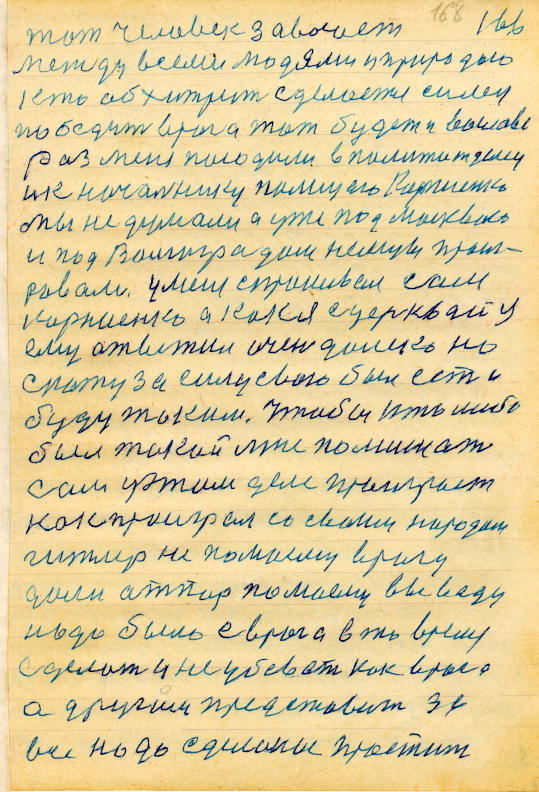 168 166
тот человек завоюет
между всеми людями и природою
кто обхитрит сделоется силен
победит врага тот будет и во славе
раз меня погодили в политотделу
ик началнику полицаю Корниенко
мы не думали а уже под Москвою
и под Волгоградом немцы проиг-
ровали. умен спрошивал сам
Корниенко а как я с церквай у
ему атветил очен долеко но
скожу за силу свою был есть и
буду таким. Чтобы кто либо
был такой мне помишать
сам у этом деле проиграет
как проиграл со своим народом
гитлер не помоему врагу
дали атпор по моему выводу
надо было с врага в то время
сделат и не убеват как врага
а другим предстовит за
все надо сделоные простит